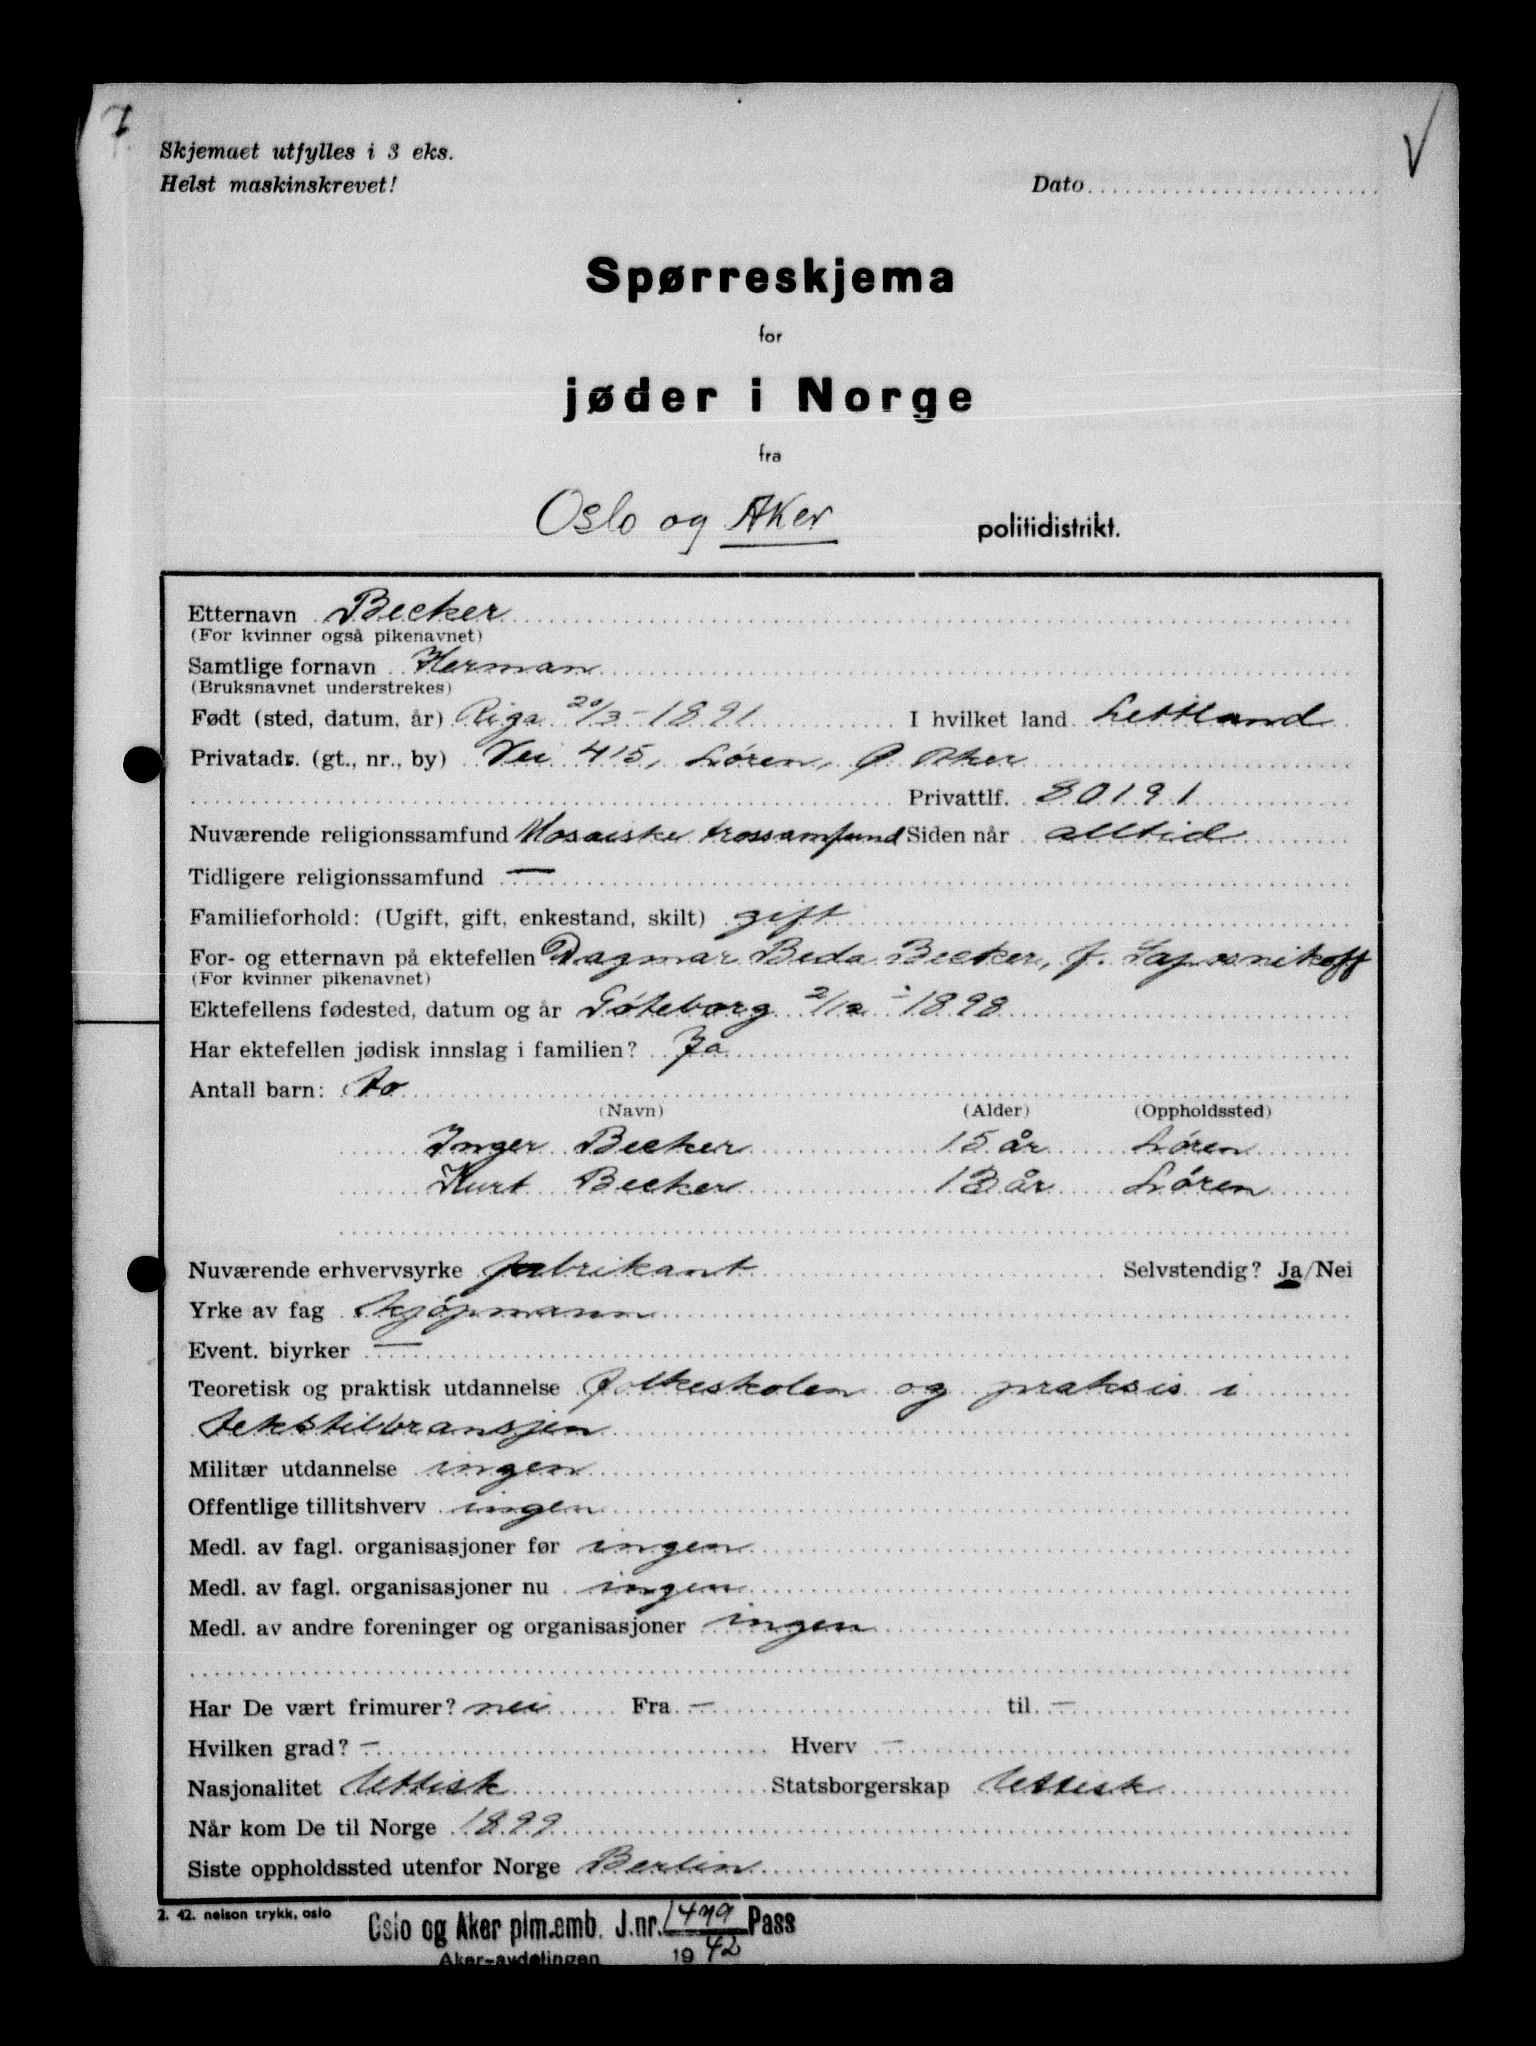 7
Skjemaet utfylles i 3 eks.
Helst maskinskrevet!
Dato
Spørreskjema
for
jøder i Norge
fra
Oslo og Aker politidistrikt.
Etternavn Becker
(For kvinner også pikenavnet)
Samtlige fornavn Herman
(Bruksnavnet understrekes)
Født (sted, datum, år) Riga 20/3-1891 I hvilket land Lettland
Privatadr. (gt., nr., by) Vei 415, Løren, Ø. Aker
Privattlf. 80191
Nuværende religionssamfund Mosaiske trossamfund Siden når alltid
Tidligere religionssamfund —
Familieforhold: (Ugift, gift, enkestand, skilt) gift
For- og etternavn på ektefellen Dagmar Beda Becker, f. Lapsnikoff
(For kvinner pikenavnet)
Ektefellens fødested, datum og år Göteborg 2/12 - 1898
Har ektefellen jødisk innslag i familien? Ja
Antall barn: to
(Navn) (Alder) (Oppholdssted)
Inger Becker 15 år Løren
Kurt Becker 13 år Løren
Nuværende erhvervsyrke fabrikant Selvstendig? Ja/Nei
Yrke av fag kjøpmann
Event. biyrker —
Teoretisk og praktisk utdannelse folkeskolen og praksis i
tekstilbransjen
Militær utdannelse ingen
Offentlige tillitshverv ingen
Medl. av fagl. organisasjoner før ingen
Medl. av fagl. organisasjoner nu ingen
Medl. av andre foreninger og organisasjoner ingen
Har De vært frimurer? nei Fra — til —
Hvilken grad? — Hverv —
Nasjonalitet lettisk Statsborgerskap lettisk
Når kom De til Norge 1899
Siste oppholdssted utenfor Norge Berlin
2. 42. nelson trykk, oslo
Oslo og Aker plm.emb. J.nr. 1479 Pass
Aker-avdelingen 1942